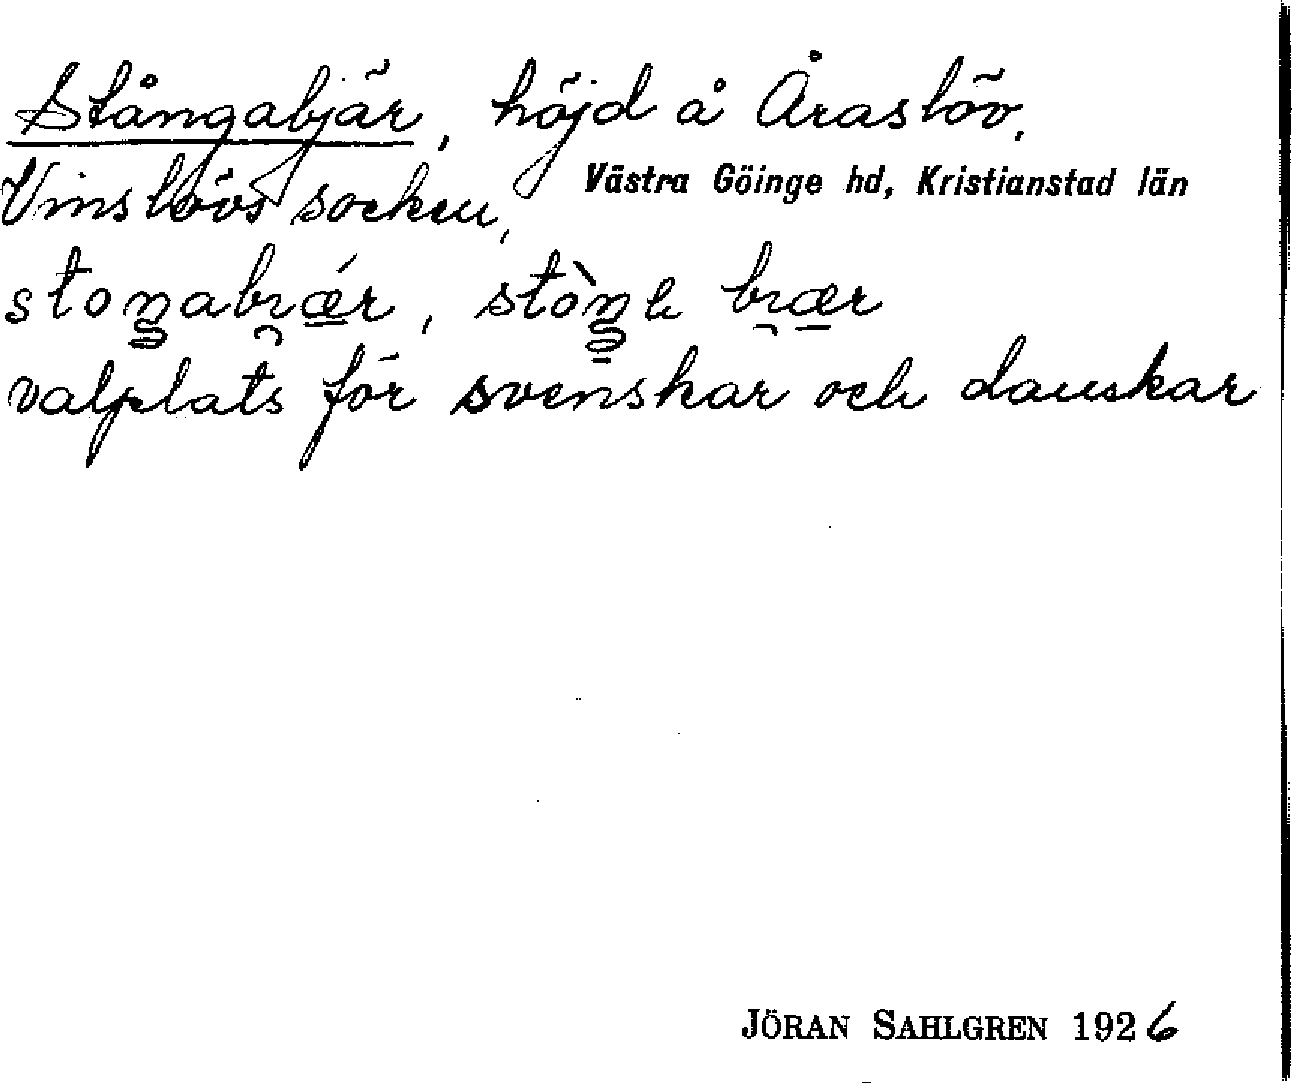 Stångabjär, höjd å Åraslöv,
Vinslövs socken, Västra Göinge hd, Kristianstad län
valplats för svenskar och danskar
JÖRAN SAHLGREN 1926